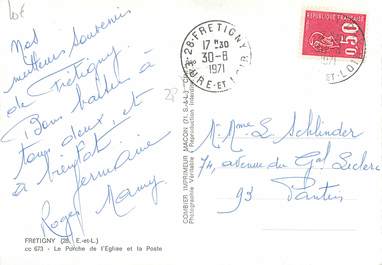 Nos
meilleurs souvenirs
de Frétigny.
Bons baisers à
tous deux, et
à bientôt
Germaine
Roger Mamy
FRETIGNY (28. E.-et-L.)
cc 673 - Le Porche de l'Eglise et la Poste
COMBIER IMPRIMEUR MACON (71. S.-&-L.)
Photographie Véritable - Reproduction Interdite
28-FRETIGNY
17 H 30
30-8
1971
EURE-ET-LOIR
REPUBLIQUE FRANCAISE
0,50
M. Mme L. Schlinder
74, avenue du Gal Leclerc
93 Pantin